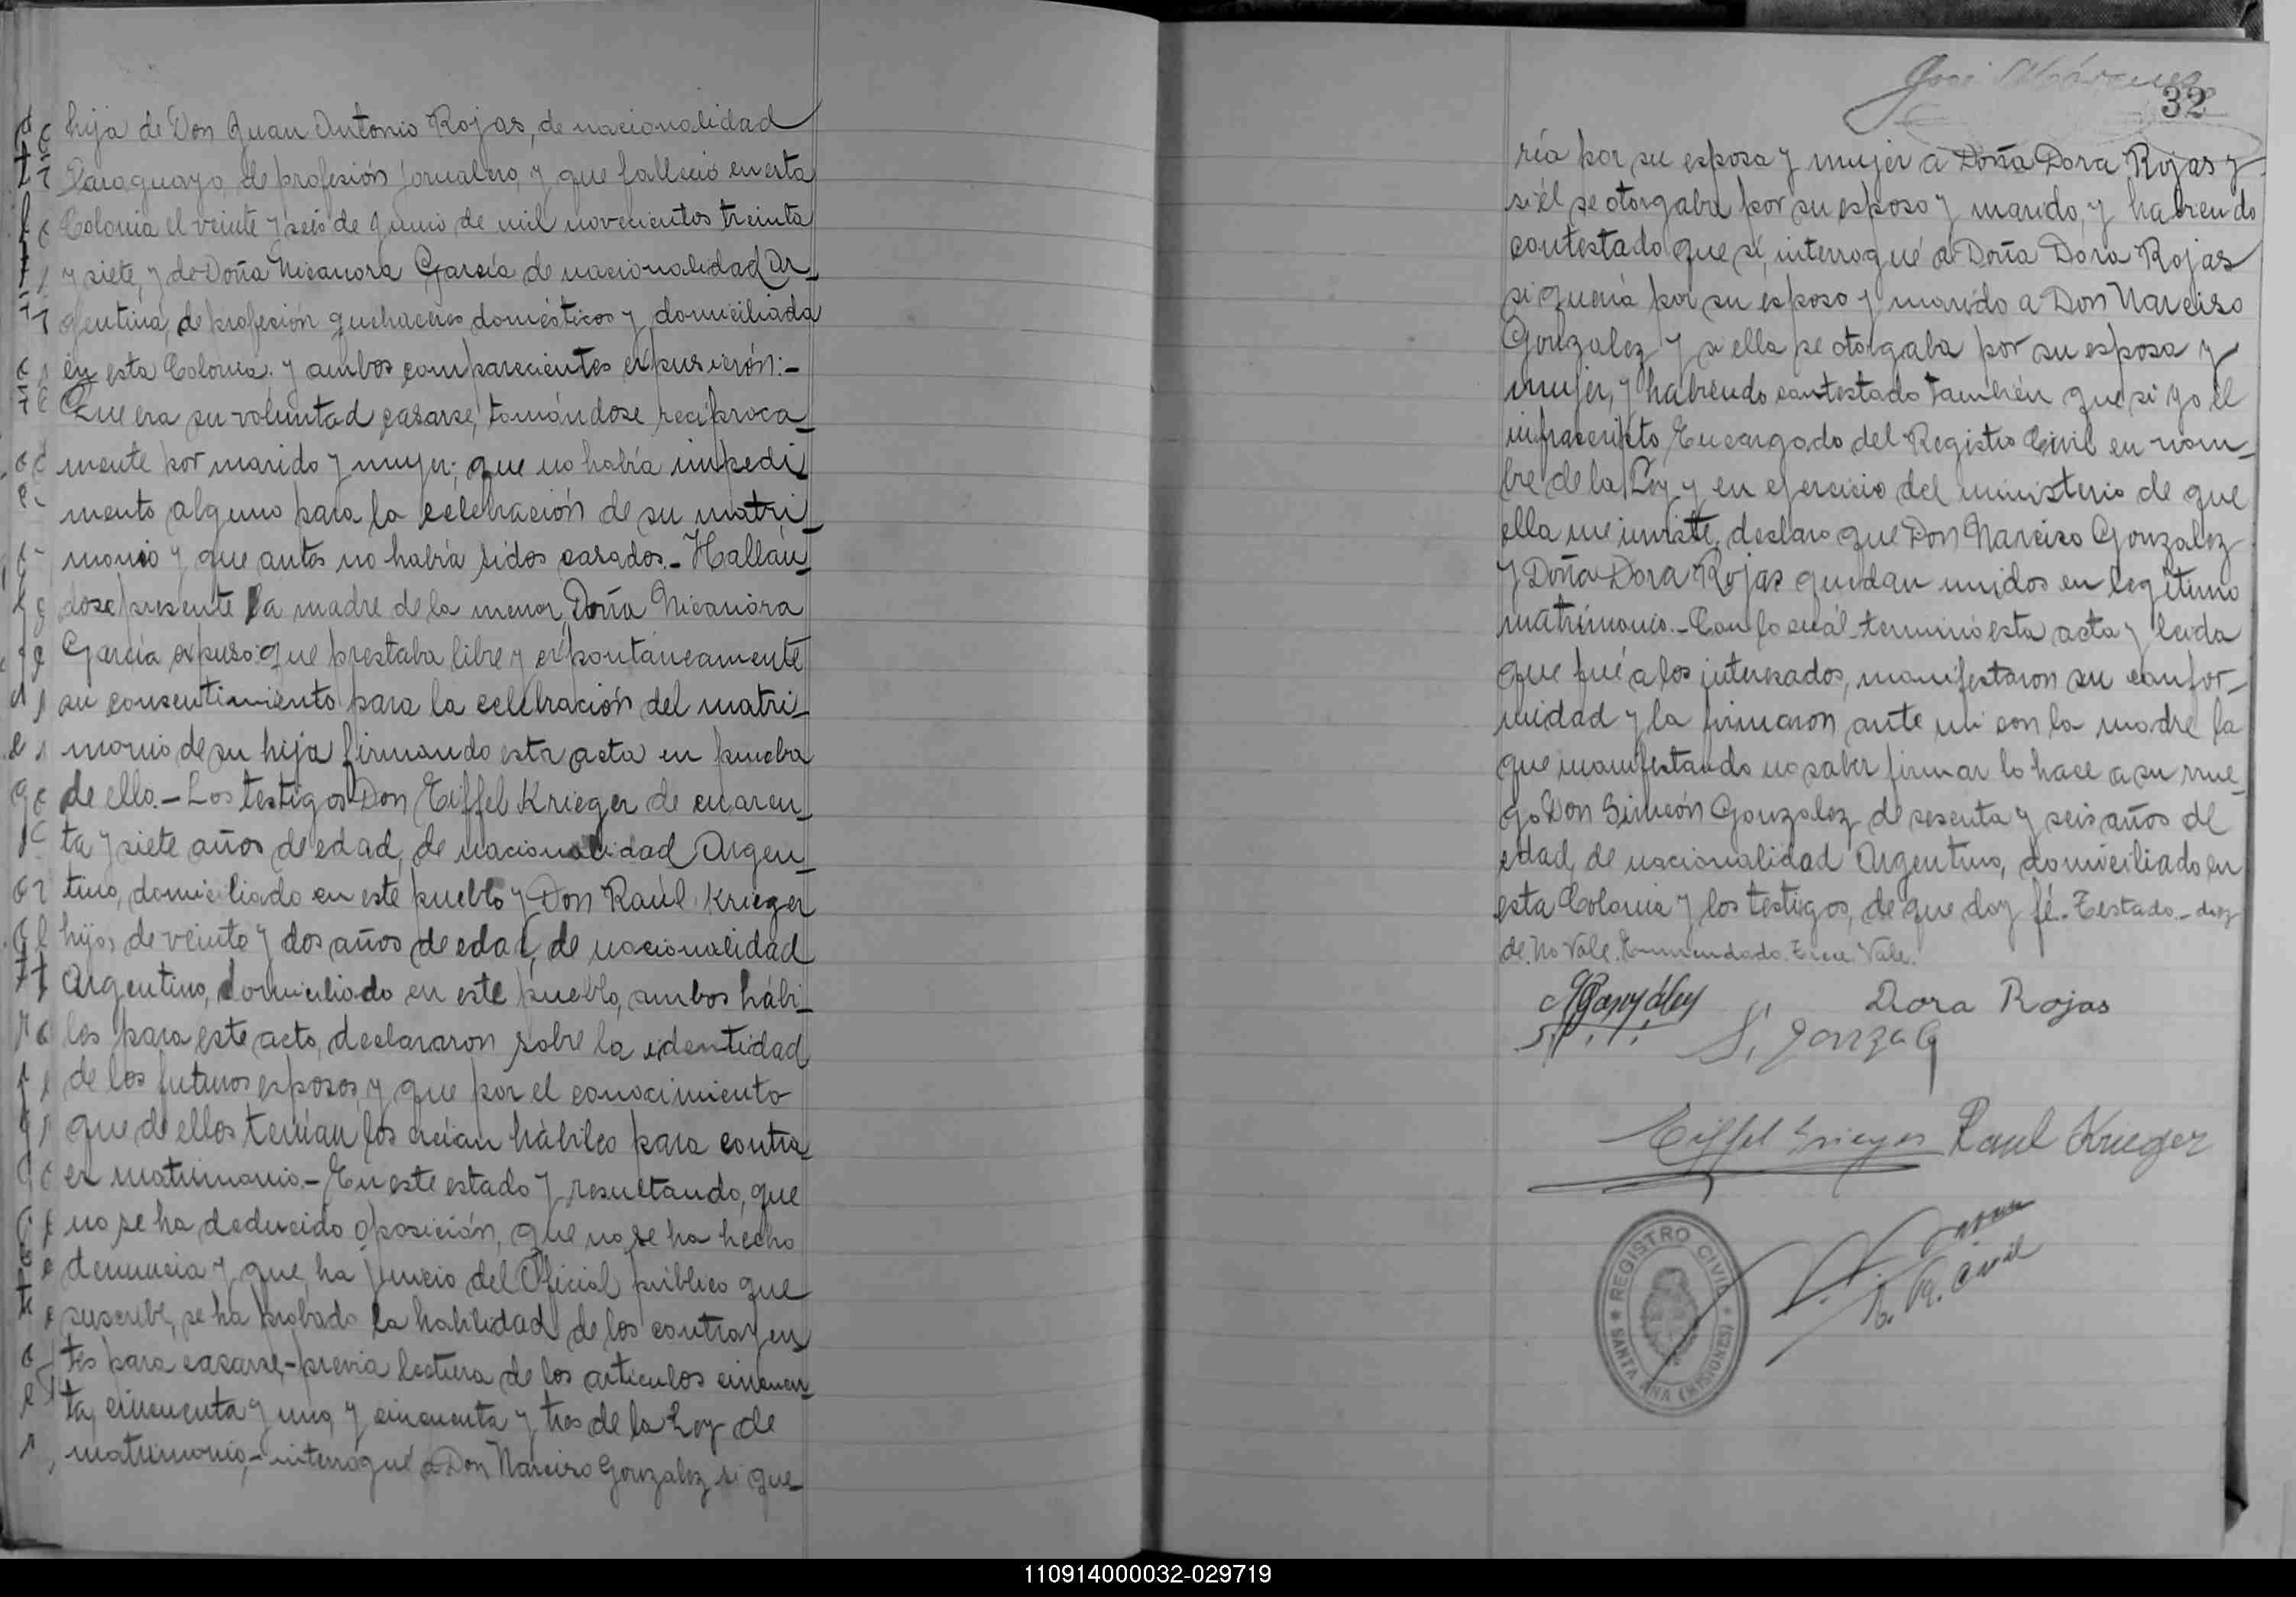 hija de Don Juan Antonio Rojas, de nacionalidad
Paraguayo, de profesión jornalero, y que falleció en esta
Colonia el veinte y seis de Junio de mil novecientos treinta
y siete, y de Doña Nicanora García de nacionalidad Ar-
gentina, de profesión quehaceres domésticos y domiciliada
en esta Colonia. y ambos comparecientes expusierón:-
Que era su voluntad casarse, tomándose recíproca-
mente por marido y mujer; que no había impedi
mento alguno para la celebración de su matri-
monio y que antes no había sidos casados.- Hallán-
dose presente la madre de la menor, Doña Nicanora
García, expuso: que prestaba libre y expontáneamente
su consentimiento para la celebración del matri-
monio de su hija firmando esta acta en prueba
de ello.- Los testigos Don Eiffel Krieger de cuaren-
ta y siete años de edad, de nacionalidad Argen-
tino, domiciliado en este pueblo y Don Raúl Krieger
hijo, de veinte y dos años de edad, de nacionalidad
Argentino, domiciliado en este pueblo, ambos hábi-
les para este acto, declararon sobre la identidad
de los futuros esposos, y que por el conocimiento
que de ellos tenían los creían hábiles para contra-
er matrimonio.- En este estado y resultando, que
no se ha deducido oposición, que no se ha hecho
denuncia y que, ha juicio del Oficial público que
suscribe, se ha probado la habilidad de los contrayen
tes para casarse,- previa lectura de los artículos cincuen-
ta, cincuenta y uno, y cincuenta y tres de la Ley de
matrimonio,- interrogué a Don Narciso Gonzalez si que-
José
32
ría por su esposa y mujer a Doña Dora Rojas y
si él se otorgaba por su esposo y marido, y habiendo
contestado que sí, interrogué a Doña Dora Rojas
si quería por su esposo y marido a Don Narciso
Gonzalez y si ella se otorgaba por su esposa y
mujer, y habiendo contestado también que si yo el
infrascripto Encargado del Registro Civil en nom-
bre de la Ley y en ejercicio del ministerio de que
ella me inviste, declaro que Don Narciso Gonzalez
y Doña Dora Rojas quedan unidos en legítimo
matrimonio.- Con lo cuál terminó esta acta y leida
que fué a los interesados, manifestaron su confor-
midad y la firmaron ante mi con la madre la
que manifestando no saber firmar lo hace a su rue-
go Don Simeón Gonzalez de sesenta y seis años de
edad, de nacionalidad Argentino, domiciliado en
esta Colonia y los testigos, de que doy fé.- Testado.-
de. No Vale. Enmendado. Vale.
Dora Rojas
S. Gonzalez
Eiffel Krieger Raul Krieger
REGISTRO CIVIL
SANTA ANA (MISIONES)
R. Civil
110914000032-029719